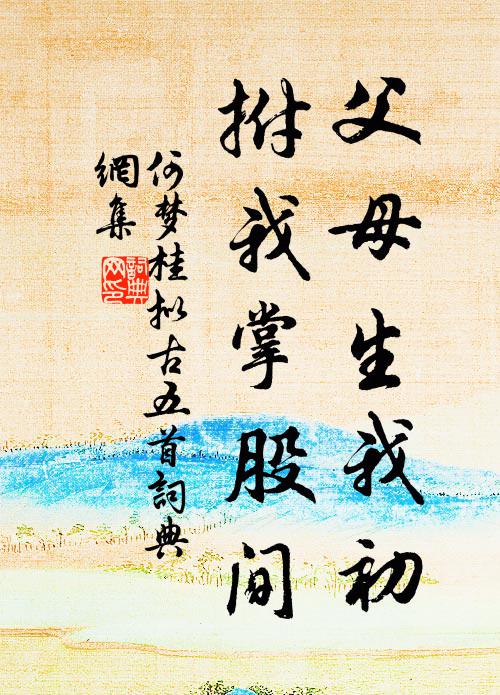 父母生我初
拊我掌股间
何梦桂拟古五首詞典
網集
詞典
网印